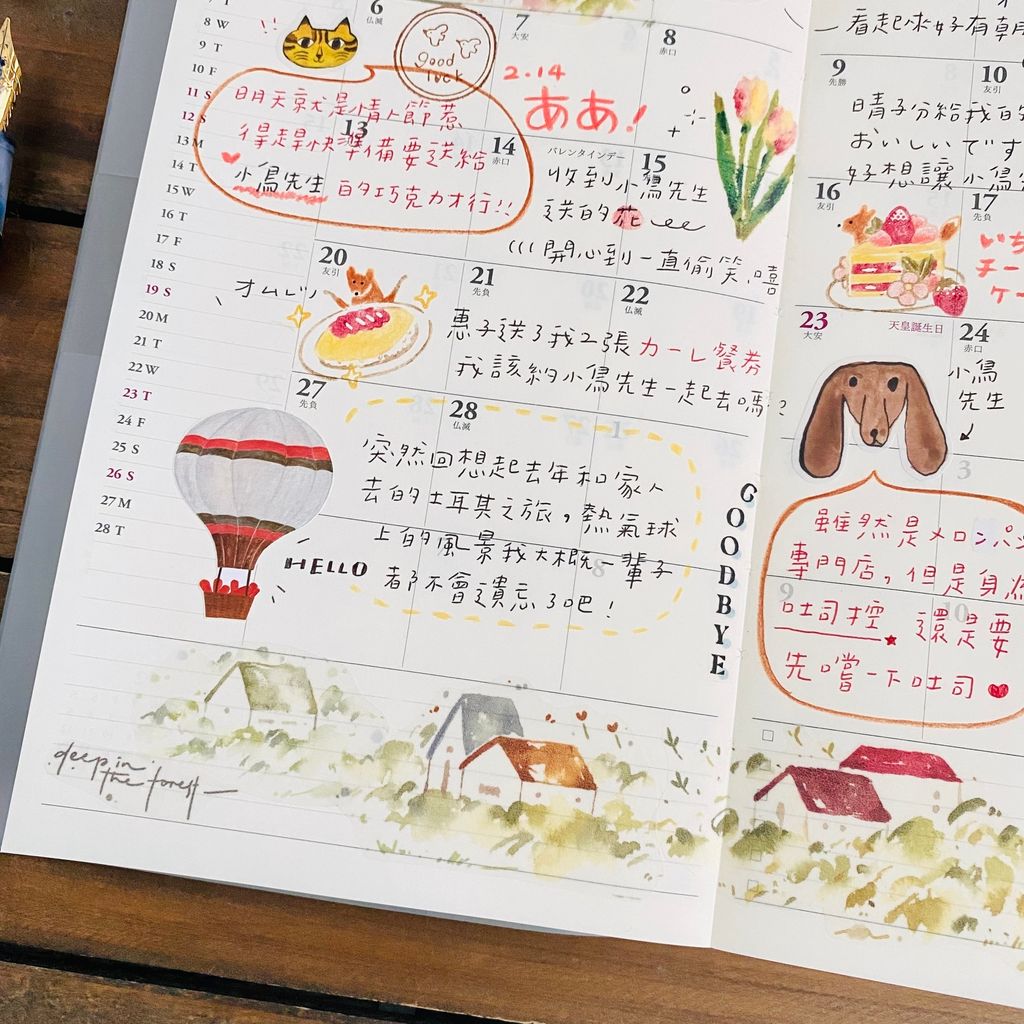 8 W
9 T
10 F
11 S
12 S
13 M
14 T
15 W
16 T
17 F
18 S
19 S
20 M
21 T
22 W
23 T
24 F
25 S
26 S
27 M
28 T
6
仏滅
7
大安
8
赤口
good
luck
2.14
ああ!
明天就是情人節惹
得趕快準備要送給
小鳥先生 的巧克力才行!!
13
14
赤口
バレンタインデー
15
收到小鳥先生
送的花
(((開心到一直偷笑,嘻
20
友引
21
先負
22
仏滅
オムレツ
惠子送了我2張カーレ餐券
我該約小鳥先生一起去嗎?
27
先負
28
仏滅
1
突然回想起去年和家人
去的土耳其之旅,熱氣球
上的風景我大概一輩子
都不會遺忘了吧!
8
HELLO
GOODBYE
deep in
the forest
看起來好有朝
9
先勝
10
友引
晴子分給我的
おいしいです
好想讓小鳥
16
友引
17
先負
いち
チー
ケー
23
大安
天皇誕生日
24
赤口
小鳥
先生
3
雖然是メロンパン
專門店,但是身為
吐司控 還是要
先嚐一下吐司
9
10